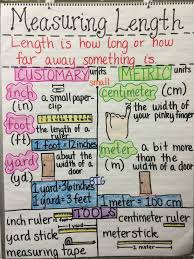 Measuring Length
Length is how long or how
far away something is.
CUSTOMARY units METRIC units
small
inch (in) a small paper-clip
centimeter (cm) the width of your pinky finger
foot (ft) the length of a ruler
1 foot = 12 inches
yard (yd) about the width of a door
meter (m) a bit more than the width of the door
BIG
1 yard = 36 inches
1 yard = 3 feet
1 meter = 100 cm
TOOLS
inch ruler
centimeter ruler
yard stick
meterstick
measuring tape
1 meter